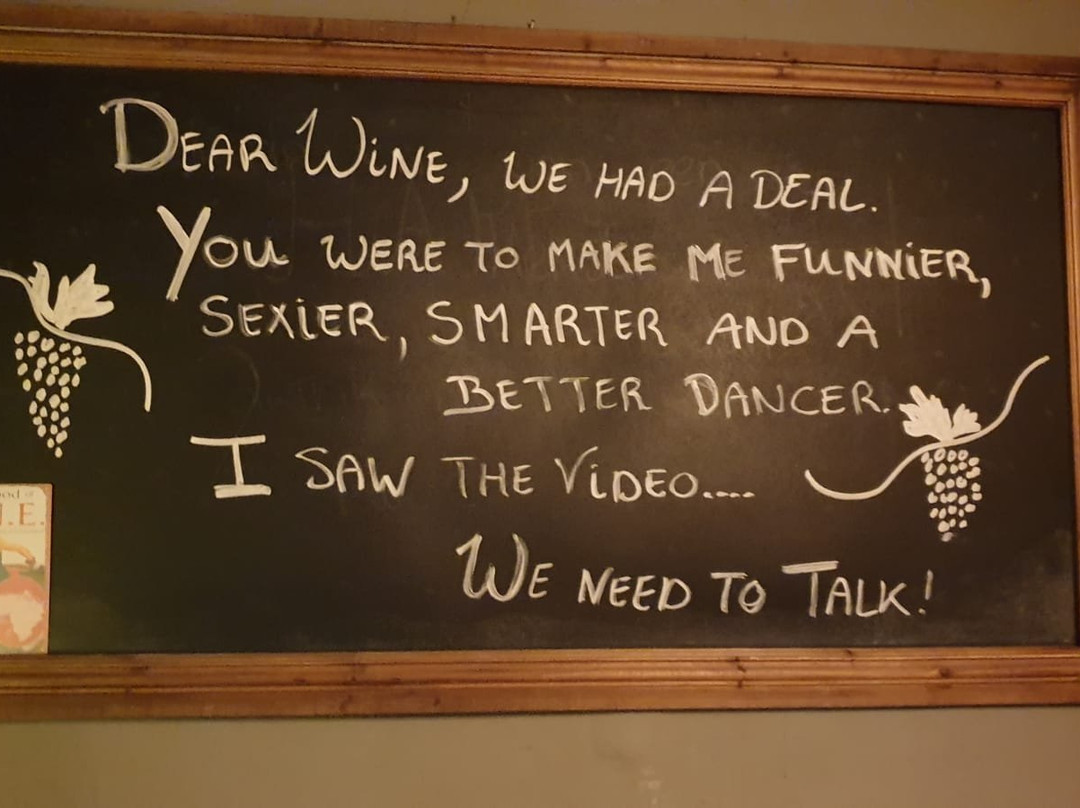 DEAR WiNE, WE HAD A DEAL.
YOU WERE TO MAKE ME FUNNiER,
SEXiER, SMARTER AND A
BETTER DANCER.
I SAW THE ViDEO....
WE NEED TO TALK!